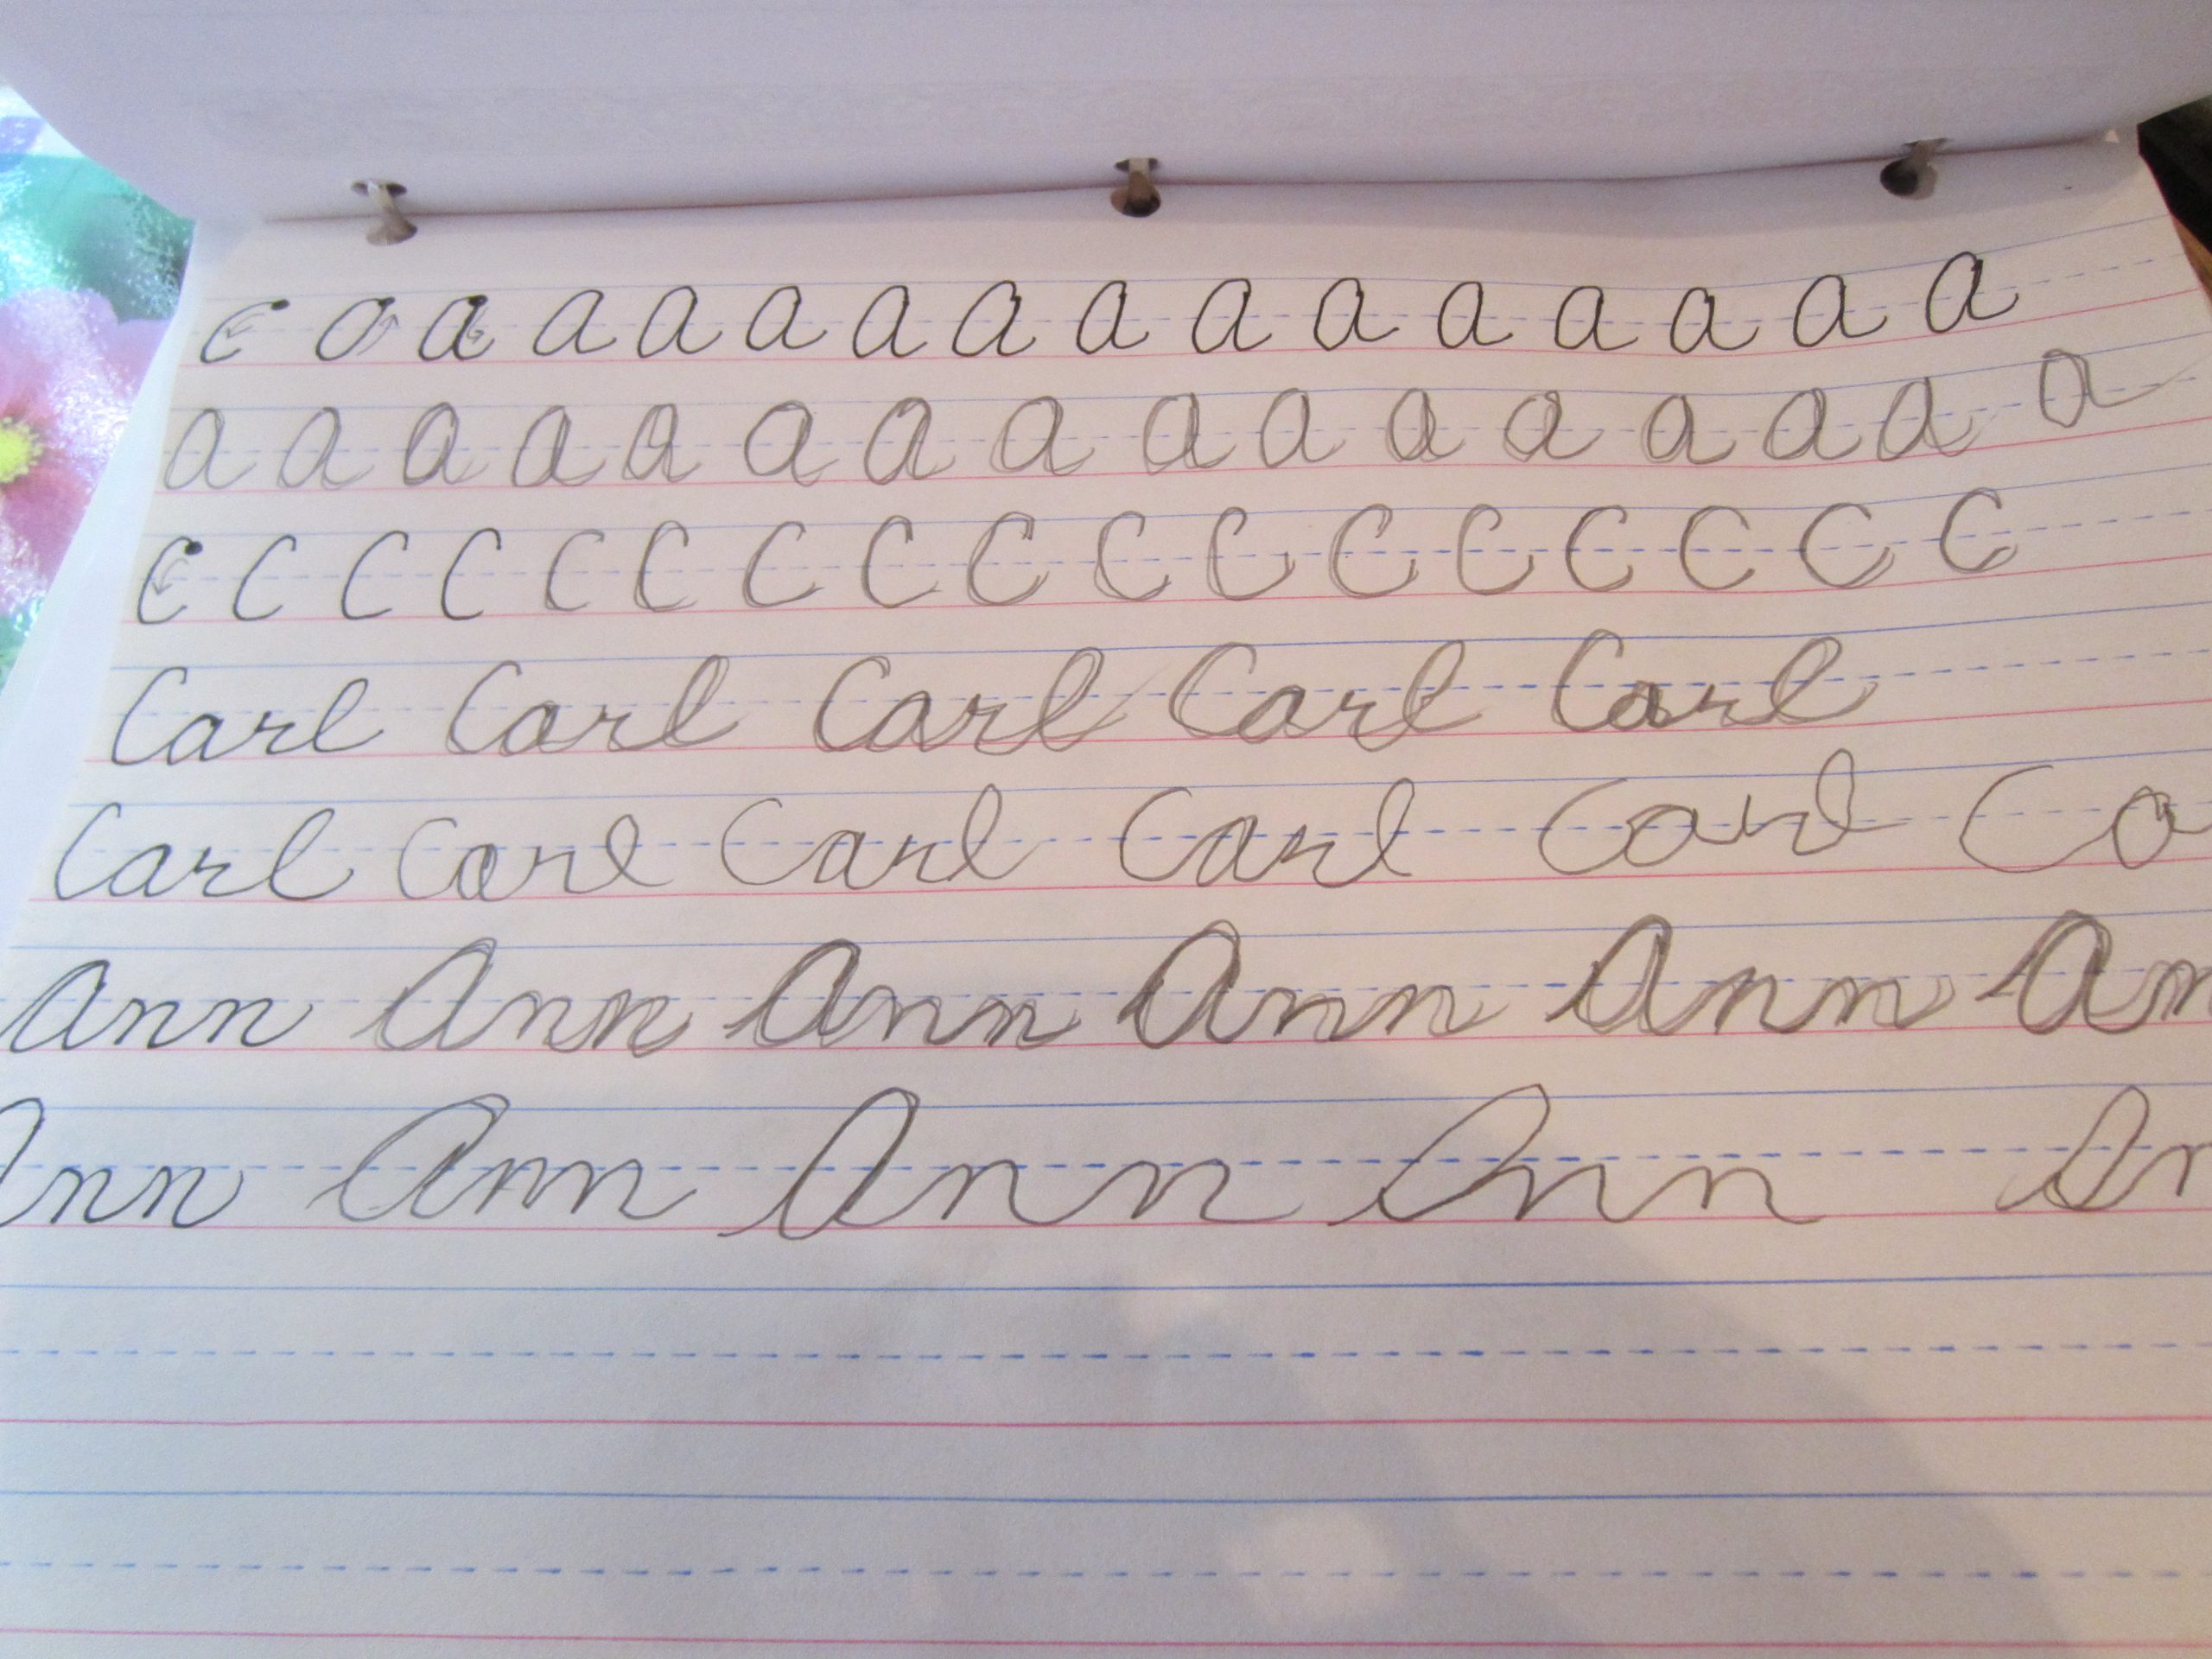 C O a a a a a a a a a a a a a a
a a a a a a a a a a a a a a a a
C C C C C C C C C C C C C C C C C
Carl Carl Carl Carl Carl
Carl Carl Carl Carl Carl Ca
Ann Ann Ann Ann Ann An
Ann Ann Ann Ann An